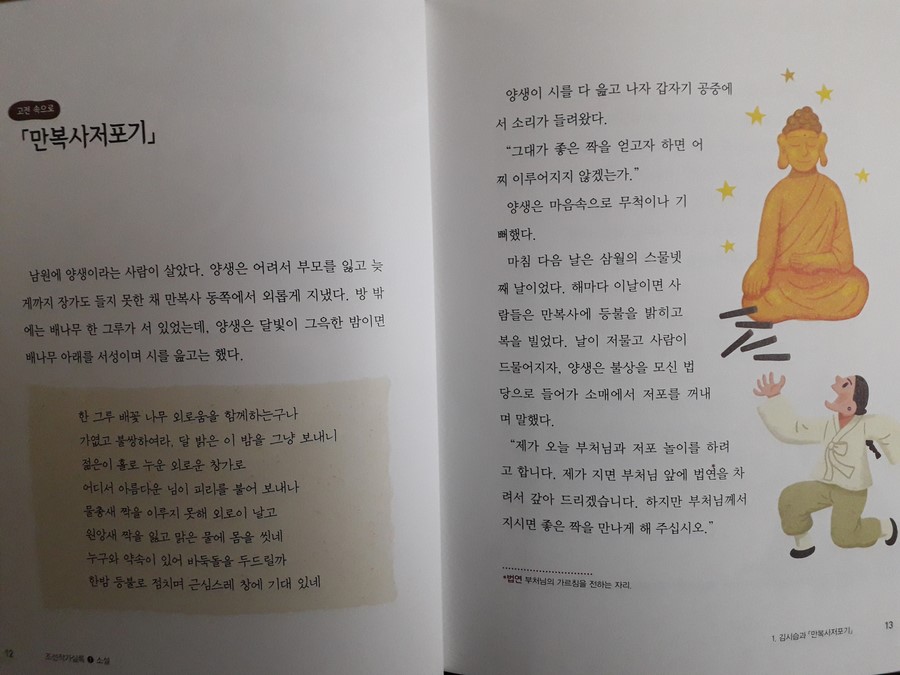 고전 속으로
「만복사저포기」
남원에 양생이라는 사람이 살았다. 양생은 어려서 부모를 잃고 늦
게까지 장가도 들지 못한 채 만복사 동쪽에서 외롭게 지냈다. 방 밖
에는 배나무 한 그루가 서 있었는데, 양생은 달빛이 그윽한 밤이면
배나무 아래를 서성이며 시를 읊고는 했다.
한 그루 배꽃 나무 외로움을 함께하는구나
가엾고 불쌍하여라, 달 밝은 이 밤을 그냥 보내니
젊은이 홀로 누운 외로운 창가로
어디서 아름다운 님이 피리를 불어 보내나
물총새 짝을 이루지 못해 외로이 날고
원앙새 짝을 잃고 맑은 물에 몸을 씻네
누구와 약속이 있어 바둑돌을 두드릴까
한밤 등불로 점치며 근심스레 창에 기대 있네
12
조선작가실록 1 소설
양생이 시를 다 읊고 나자 갑자기 공중에
서 소리가 들려왔다.
“그대가 좋은 짝을 얻고자 하면 어
찌 이루어지지 않겠는가.”
양생은 마음속으로 무척이나 기
뻐했다.
마침 다음 날은 삼월의 스물넷
째 날이었다. 해마다 이날이면 사
람들은 만복사에 등불을 밝히고
복을 빌었다. 날이 저물고 사람이
드물어지자, 양생은 불상을 모신 법
당으로 들어가 소매에서 저포를 꺼내
며 말했다.
“제가 오늘 부처님과 저포 놀이를 하려
고 합니다. 제가 지면 부처님 앞에 법연을 차
려서 갚아 드리겠습니다. 하지만 부처님께서
지시면 좋은 짝을 만나게 해 주십시오.”
*법연 부처님의 가르침을 전하는 자리.
1. 김시습과 「만복사저포기」
13